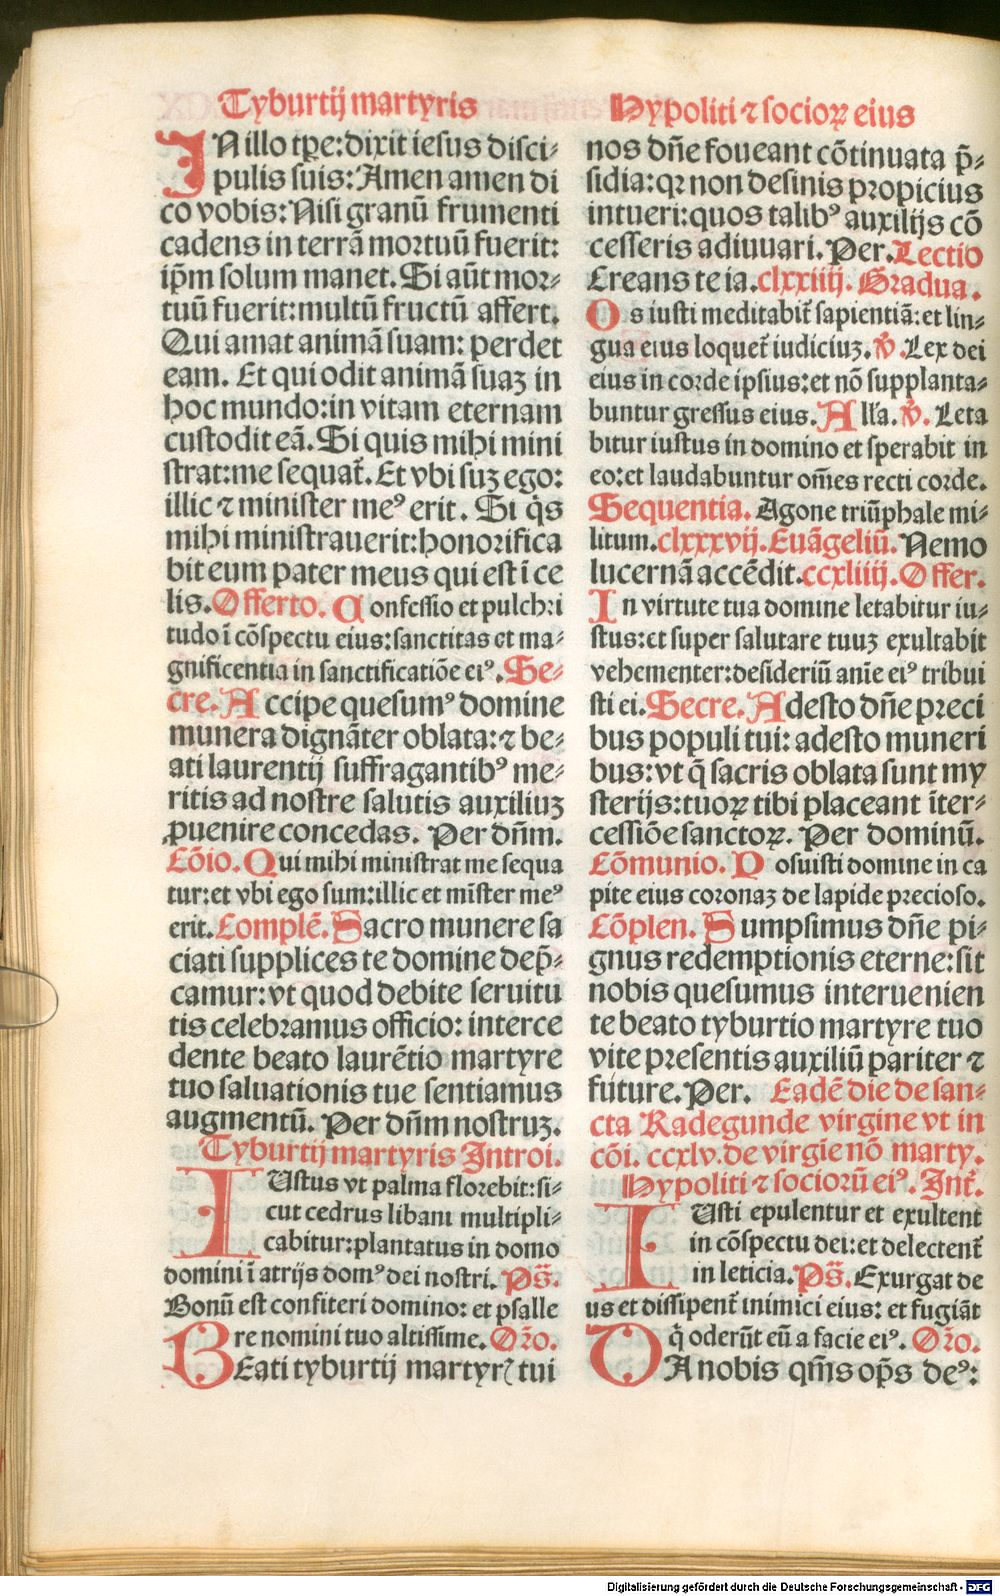 Tyburtij martyris
IN illo tp̄e: dixit iesus disci⸗
pulis suis: Amen amen di
co vobis: Nisi granū frumenti
cadens in terrā mortuū fuerit:
ip̄m solum manet. Si aūt mor⸗
tuū fuerit: multū fructū affert.
Qui amat animā suam: perdet
eam. Et qui odit animā suaꝫ in
hoc mundo: in vitam eternam
custodit eā. Si quis mihi mini
strat: me sequat̄. Et vbi suꝫ ego:
illic ⁊ minister meꝰ erit. Si q̇s
mihi ministrauerit: honorifica
bit eum pater meus qui est ī ce
lis. Offerto. Confessio et pulchri
tudo ī cōspectu eius: sanctitas et ma⸗
gnificentia in sanctificatiōe eiꝰ. Se⸗
cre. Accipe quesumꝰ domine
munera dignāter oblata: ⁊ be⸗
ati laurentij suffragantibꝰ me⸗
ritis ad nostre salutis auxiliuꝫ
ꝓuenire concedas. Per dn̄m.
Cōio. Qui mihi ministrat me sequa
tur: et vbi ego sum: illic et mīster meꝰ
erit. Complē. Sacro munere sa
ciati supplices te domine dep̄⸗
camur: vt quod debite seruitu
tis celebramus officio: interce
dente beato laurētio martyre
tuo saluationis tue sentiamus
augmentū. Per dn̄m nostruꝫ.
Tyburtij martyris Introi.
IUstus vt palma florebit: si⸗
cut cedrus libani multipli⸗
cabitur: plantatus in domo
domini ī atrijs domꝰ dei nostri. Ps̄.
Bonū est confiteri domino: et psalle
re nomini tuo altissime. Or̄o.
BEati tyburtij martyrꝭ tui
Hypoliti ⁊ socioꝝ eius
nos dn̄e foueant cōtinuata p̄⸗
sidia: qꝛ non desinis propicius
intueri: quos talibꝰ auxilijs cō
cesseris adiuuari. Per. Lectio
Creans te ia. clxxiiij. Gradua.
Os iusti meditabit̄ sapientiā: et lin⸗
gua eius loquet̄ iudiciuꝫ. ℣. Lex dei
eius in corde ipsius: et nō supplanta⸗
buntur gressus eius. All'a. ℣. Leta
bitur iustus in domino et sperabit in
eo: et laudabuntur om̄es recti corde.
Sequentia. Agone triūphale mi⸗
litum. clxxxvij. Euāgeliū. Nemo
lucernā accēdit. ccxliiij. Offer.
In virtute tua domine letabitur iu⸗
stus: et super salutare tuuꝫ exultabit
vehementer: desideriū anīe eiꝰ tribui
sti ei. Secre. Adesto dn̄e preci
bus populi tui: adesto muneri
bus: vt q̄ sacris oblata sunt my
sterijs: tuoꝝ tibi placeant īter⸗
cessiōe sanctoꝝ. Per dominū.
Cōmunio. Posuisti domine in ca
pite eius coronaꝫ de lapide precioso.
Cōplen. Sumpsimus dn̄e pi⸗
gnus redemptionis eterne: sit
nobis quesumus interuenien
te beato tyburtio martyre tuo
vite presentis auxiliū pariter ⁊
future. Per. Eadē die de san⸗
cta Radegunde virgine vt in
cōi. ccxlv. de virgīe nō marty.
Hypoliti ⁊ sociorū eiꝰ. Int̄.
IUsti epulentur et exultent
in cōspectu dei: et delectent̄
in leticia. Ps̄. Exurgat de
us et dissipent̄ inimici eius: et fugiāt
q̇ oderūt eū a facie eiꝰ. Or̄o.
DA nobis qm̄s op̄s deꝰ:
Digitalisierung gefördert durch die Deutsche Forschungsgemeinschaft - DFG